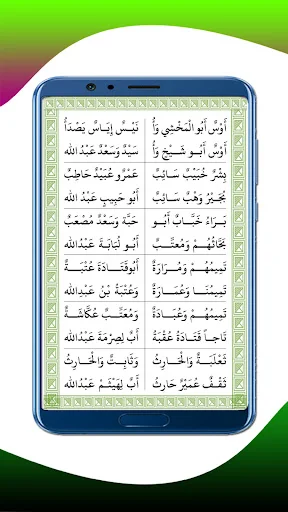 أَوْسٌ أَبُو الْمَخْشِي وَأُ نَيْسٌ إِيَاسٌ يَصْدَأُ
أَوْسٌ أَبُو شَيْخٍ وَأُ سَيْدٌ وَسَعْدٌ عَبْدُ الله
بِشْرٌ كُبَيْسٌ سَائِبٌ عَمْرٌو عُبَيْدٌ حَاطِبٌ
بُجَيْرٌ وَهْبٌ سَائِبٌ أَبُو حَبِيبٍ عَبْدُ الله
بَرَاءٌ خَبَّابٌ أَبُو حَبَّة وَسَعْدٌ مِصْعَبٌ
بَحَّاثُهُمْ وَمُعَتِّبٌ أَبُو لُبَابَةَ عَبْدُالله
تَمِيمُهُمْ وَمُرَارَةٌ أَبُوقَتَادَةَ عُتْبَةٌ
تَمِيمُنَا وَعُمَارَةٌ وَعُتْبَةُ بْنُ عَبْدِالله
تَمِيمُهُمْ وَعُبَادَةٌ وَمُعَتِّبٌ عُكَّاشَةٌ
تَاجاً قَتَادَةُ عُقْبَةُ أَبٌ لِصِرْمَةَ عَبْدُالله
ثَعْلَبَةٌ وَالْحَارِثُ وَثَابِتٌ وَالْحَارِثُ
ثَقْفٌ عُمَيْرٌ حَارِثُ أَبٌ لِهَيْثَمٍ عَبْدُالله